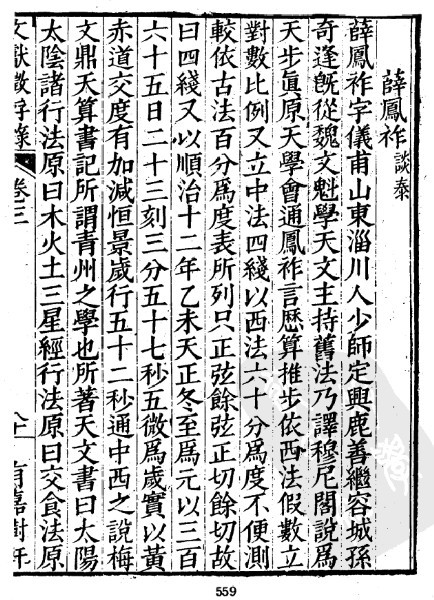 薛鳳祚談泰
薛鳳祚字儀甫山東淄川人少師定興鹿善繼容城孫
奇逢旣從魏文魁學天文主持舊法乃譯穆尼閣說爲
天步眞原天學會通鳳祚言厯算推步依西法假數立
對數比例又立中法四綫以西法六十分爲度不便測
較依古法百分爲度表所列只正弦餘弦正切餘切故
曰四綫又以順治十二年乙未天正冬至爲元以三百
六十五日二十三刻三分五十七秒五微爲歲實以黃
赤道交度有加減恒景歲行五十二秒通中西之說梅
文鼎天算書記所謂青州之學也所著天文書曰太陽
太陰諸行法原曰木火土三星經行法原曰交食法原
文獻徵存錄
卷三
八十一
有嘉樹軒
559